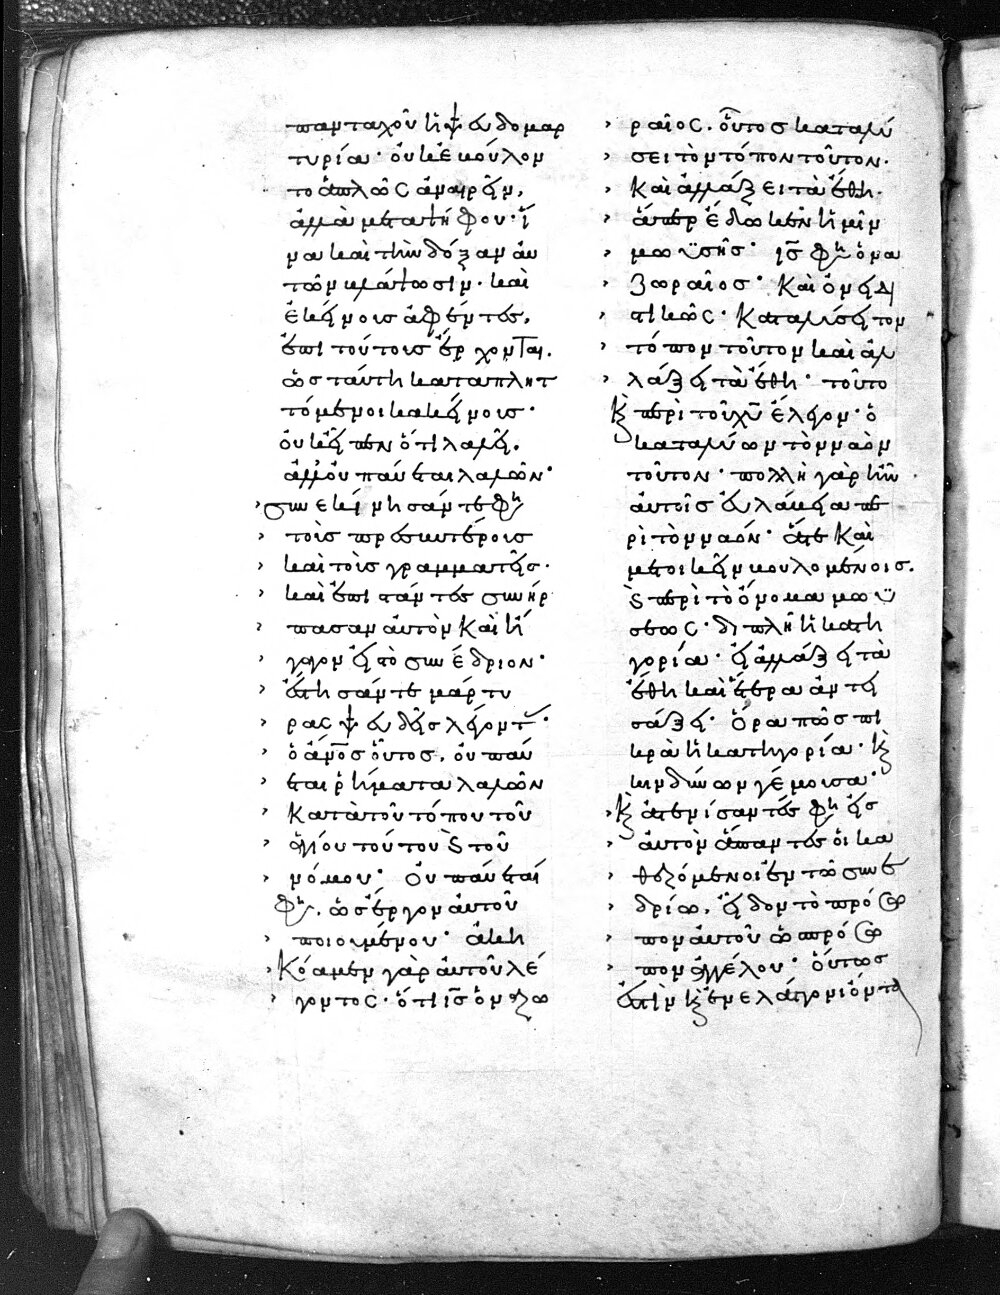 πανταχοῦ ἡ ψευδομαρ
τυρία· οὐκ ἐβούλον
το ἁπλῶς ἀναιρεῖν,
ἀλλὰ μετὰ ψήφου· ἵ
να καὶ τὴν δόξαν αὐ
τῶν βλάψωσιν· καὶ
ἐκείνοις ἀφέντες,
ἐπὶ τούτοις ἔρχονται.
ὥστ αὐτὴ καταπλητ
τόμενοι κακείνοις·
οὐκ εἶπεν ὅτι λαλεῖ,
ἀλλ' οὐ παύεται λαλῶν·
› συνεκίνησάν τε φη
› τοῖς πρεσβυτέροις
› καὶ τοῖς γραμματεῖς·
› καὶ ἐπιστάντες συνήρ
› πασαν αὐτὸν καὶ ἤ
› γαγον εἰς τὸ συνέδριον·
› ἔστησάν τε μάρτυ
› ρας ψευδεῖς λέγοντ·
› ὁ ἄνος οὗτος, οὐ παύ
› εται ῥήματα λαλῶν
› κατὰ τοῦ τόπου τοῦ
› ἁγίου τούτου καὶ τοῦ
› νόμου· οὐ παύεταί
φη, ὡς ἔργον αὐτοῦ
› ποιουμένου· ἀκη
› κόαμεν γὰρ αὐτοῦ λέ
› γοντος· ὅτι ις ὁ ναζω
› ραῖος, οὗτος καταλύ
› σει τὸν τόπον τοῦτον·
› καὶ ἀλλάξει τὰ ἔθη·
› ἅπερ ἔδωκεν ἡμῖν
› μωϋσῆς· ις φη ὁ να
› ζωραῖος· καὶ ὀνειδι
› στικῶς· καταλύσει τὸν
› τόπον τοῦτον καὶ ἀλ
› λάξει τὰ ἔθη· τοῦτο
καὶ περὶ τοῦ χυ ἔλεγον· ὁ
καταλύων τὸν ναὸν
τοῦτον· πολλὴ γὰρ ἦν
αὐτοῖς εὐλάβεια πε
ρὶ τὸν ναόν· ἅτε καὶ
μετοικεῖν βουλομένοις.
καὶ περὶ τὸ ὄνομα μωϋ
σέως· διπλῆ ἡ κατη
γορία· εἰ ἀλλάξει τὰ
ἔθη καὶ ἕτερα ἀντει
σάξει· ὅρα πῶς πι
κρὰ ἡ κατηγορία· καὶ
κινδύνων γέμουσα·
› καὶ ἀτενίσαντες φη εἰς
› αὐτὸν ἅπαντες οἱ κα
› θεζόμενοι ἐν τῷ συνε
› δρίῳ, εἶδον τὸ πρόσω
› πον αὐτοῦ ὡς πρόσω
› πον ἀγγέλου· οὕτως
ἔστιν καὶ ἐν ἐλάττονι ὄντα